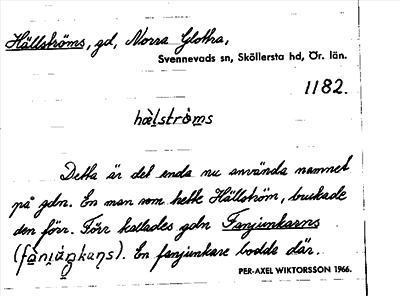 Hällströms, gd, Norra Glottra,
Svennevads sn, Sköllersta hd, Ör. län.
1182.
hä̀l̥strö̀m̥s
Detta är det enda nu använda namnet
på gdn. En man som hette Hällström, brukade
den förr. Förr kallades gdn Fanjunkarns
(fànjàŋkan̥s). En fanjunkare bodde där.
PER-AXEL WIKTORSSON 1966.